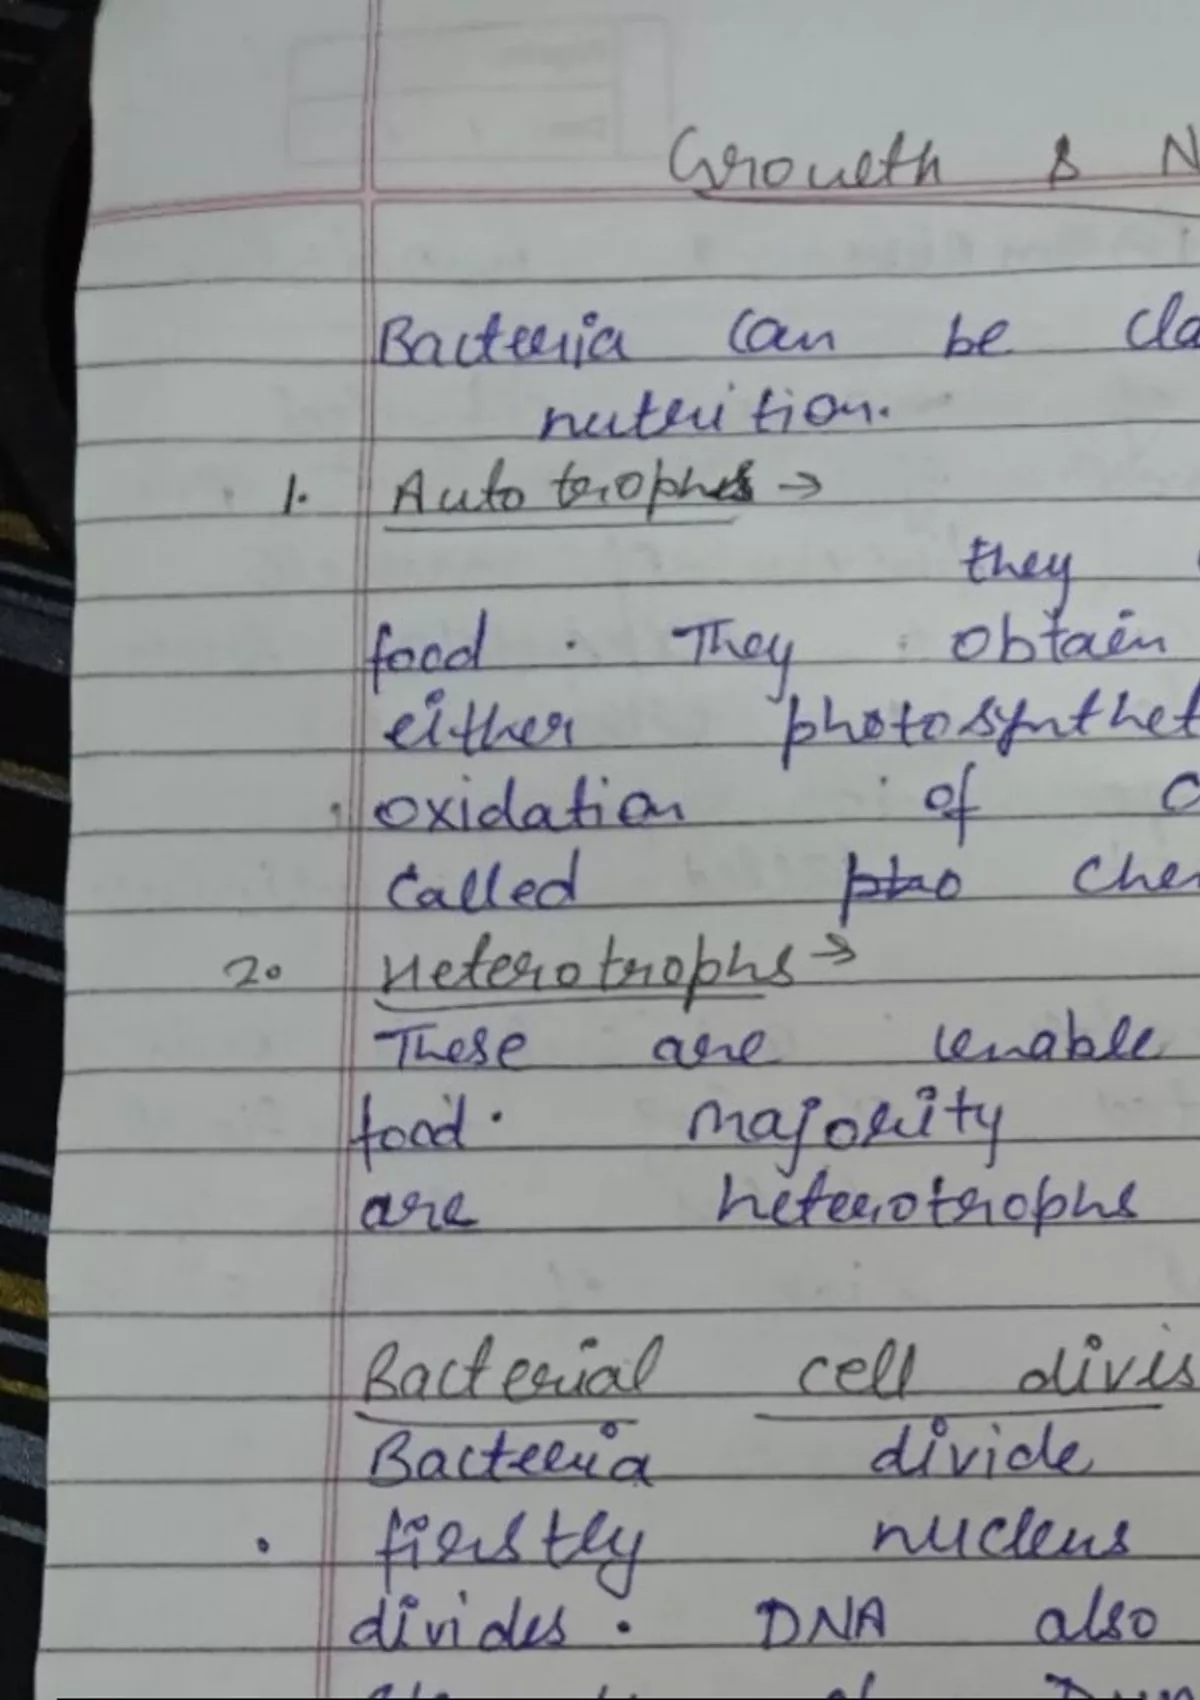 Growth & N
Bacteria can be cla
nutrition.
1. Autotrophs →
they
food. They obtain
either photosynthet
oxidation of C
Called chem
2. Heterotrophs →
These are unable
food. majority
are heterotrophs
Bacterial cell divis
Bacteria divide
firstly nucleus
divides. DNA also